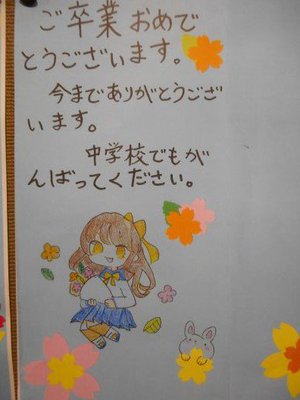 ご卒業おめで
とうございます。
今までありがとうござ
います。
中学校でもが
んばってください。